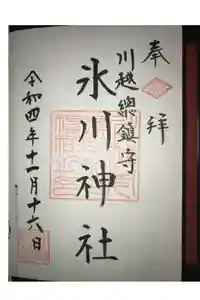 奉拝
川越總鎮守
氷川神社
令和四年十一月十六日